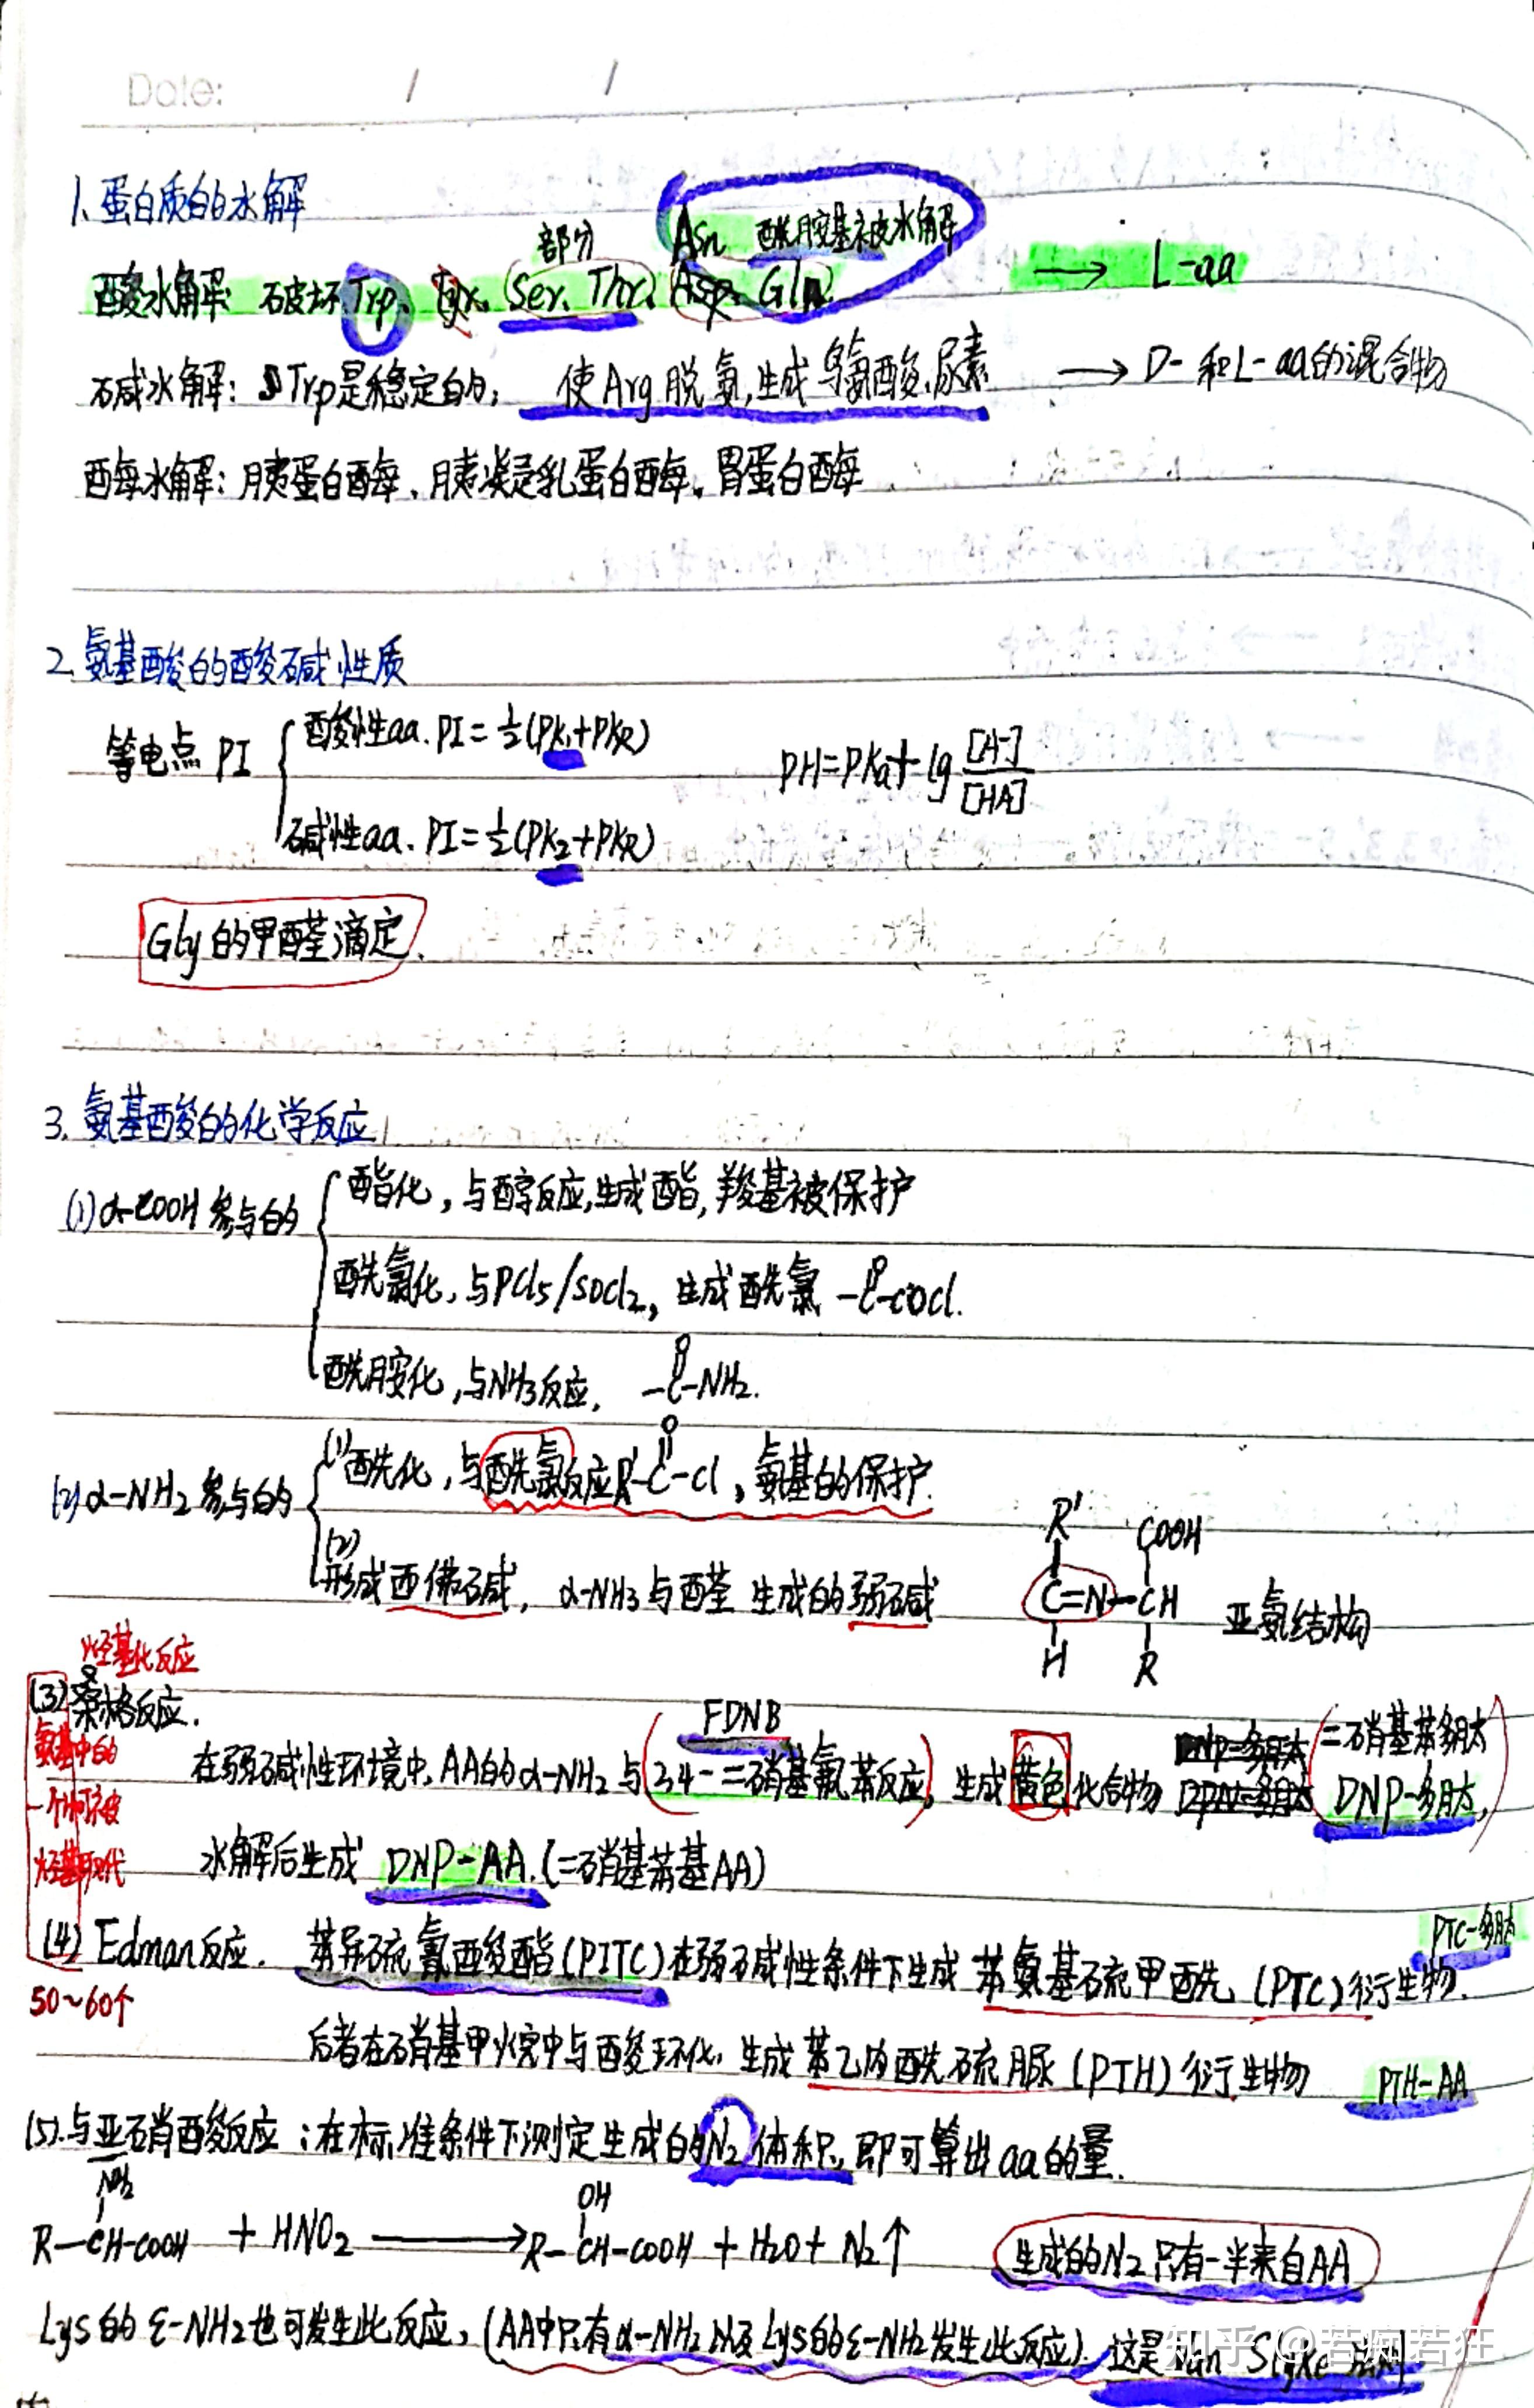 Date: / /
1. 蛋白质的水解
部分 Asn 酰胺基被水解
酸水解: 破坏Trp、Tyr、(Ser、Thr)、(Asp、Gln) → L-aa
碱水解: Trp是稳定的; 使Arg脱氨,生成鸟氨酸、尿素 → D-和L-aa的混合物
酶水解: 胰蛋白酶、胰凝乳蛋白酶、胃蛋白酶
2. 氨基酸的酸碱性质
等电点 PI
酸性aa. PI=½(PK₁+PKR)
PH=PKa+lg [A-]/[HA]
碱性aa. PI=½(PK₂+PKR)
Gly的甲醛滴定.
3. 氨基酸的化学反应
(1) α-COOH参与的
酯化,与醇反应,生成酯,羧基被保护
酰氯化,与PCl₅/SOCl₂,生成酰氯 -C-COCl.
O
酰胺化,与NH₃反应, -C-NH₂.
O
(2) α-NH₂参与的
(1) 酰化,与酰氯反应R'-C-Cl,氨基的保护.
O
(2) 形成西佛碱, α-NH₃与醛生成的弱碱
R' COOH
C=N-CH 亚氨结构
H R
烃基化反应
(3) 桑格反应.
氨基中的
一个H可被
烃基取代
FDNB
在弱碱性环境中,AA的α-NH₂与(2,4-二硝基氟苯反应),生成黄色化合物 (二硝基苯多肽
DNP-多肽),
水解后生成 DNP-AA.(二硝基苯基AA)
(4) Edman反应. 苯异硫氰酸酯(PITC)在弱碱性条件下生成苯氨基硫甲酰(PTC)衍生物.
PTC-多肽
50~60个
后者在硝基甲烷中与酸环化,生成苯乙内酰硫脲(PTH)衍生物 PTH-AA
(5). 与亚硝酸反应;在标准条件下测定生成的N₂体积,即可算出aa的量.
NH₂ OH
R-CH-COOH + HNO₂ → R-CH-COOH + H₂O + N₂↑ 生成的N₂只有一半来自AA
Lys的ε-NH₂也可发生此反应,(AA中只有α-NH₂以及Lys的ε-NH₂发生此反应).这是Van Slyke
知乎 @若痴若狂